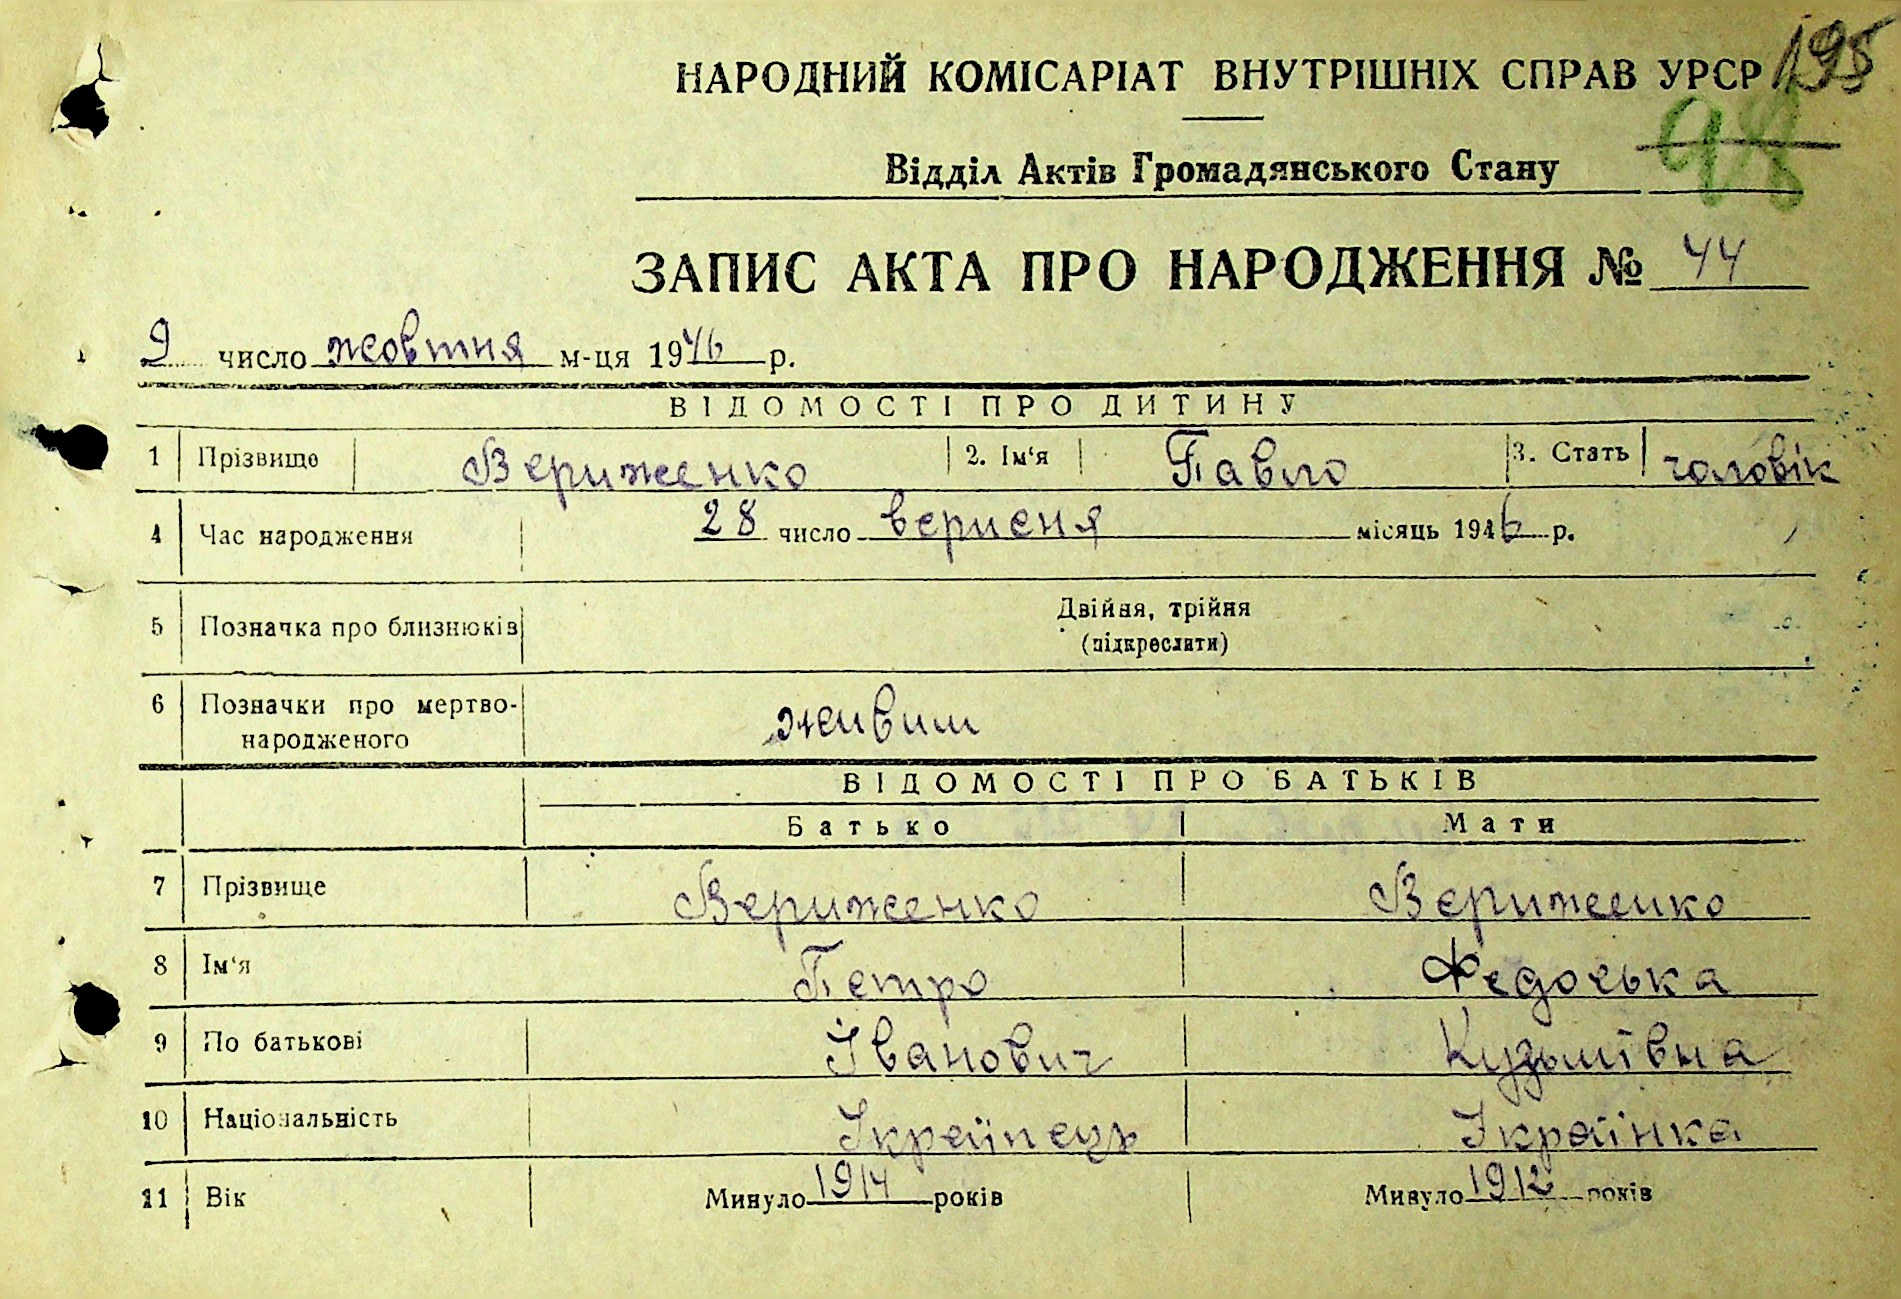 195
НАРОДНИЙ КОМІСАРІАТ ВНУТРІШНІХ СПРАВ УРСР
98
Відділ Актів Громадянського Стану
ЗАПИС АКТА ПРО НАРОДЖЕННЯ № 44
9 число жовтня м-ця 1946 р.
ВІДОМОСТІ ПРО ДИТИНУ
1 Прізвище Вериженко 2. Ім'я Павло 3. Стать чоловік
4 Час народження 28 число верисня місяць 1946 р.
5 Позначка про близнюків Двійня, трійня
(підкреслити)
6 Позначки про мертво-
народженого живим
ВІДОМОСТІ ПРО БАТЬКІВ
Батько Мати
7 Прізвище Вериженко Вериженко
8 Ім'я Петро Федоська
9 По батькові Іванович Кузьмівна
10 Національність Українець Українка
11 Вік Минуло 1914 років Минуло 1912 років